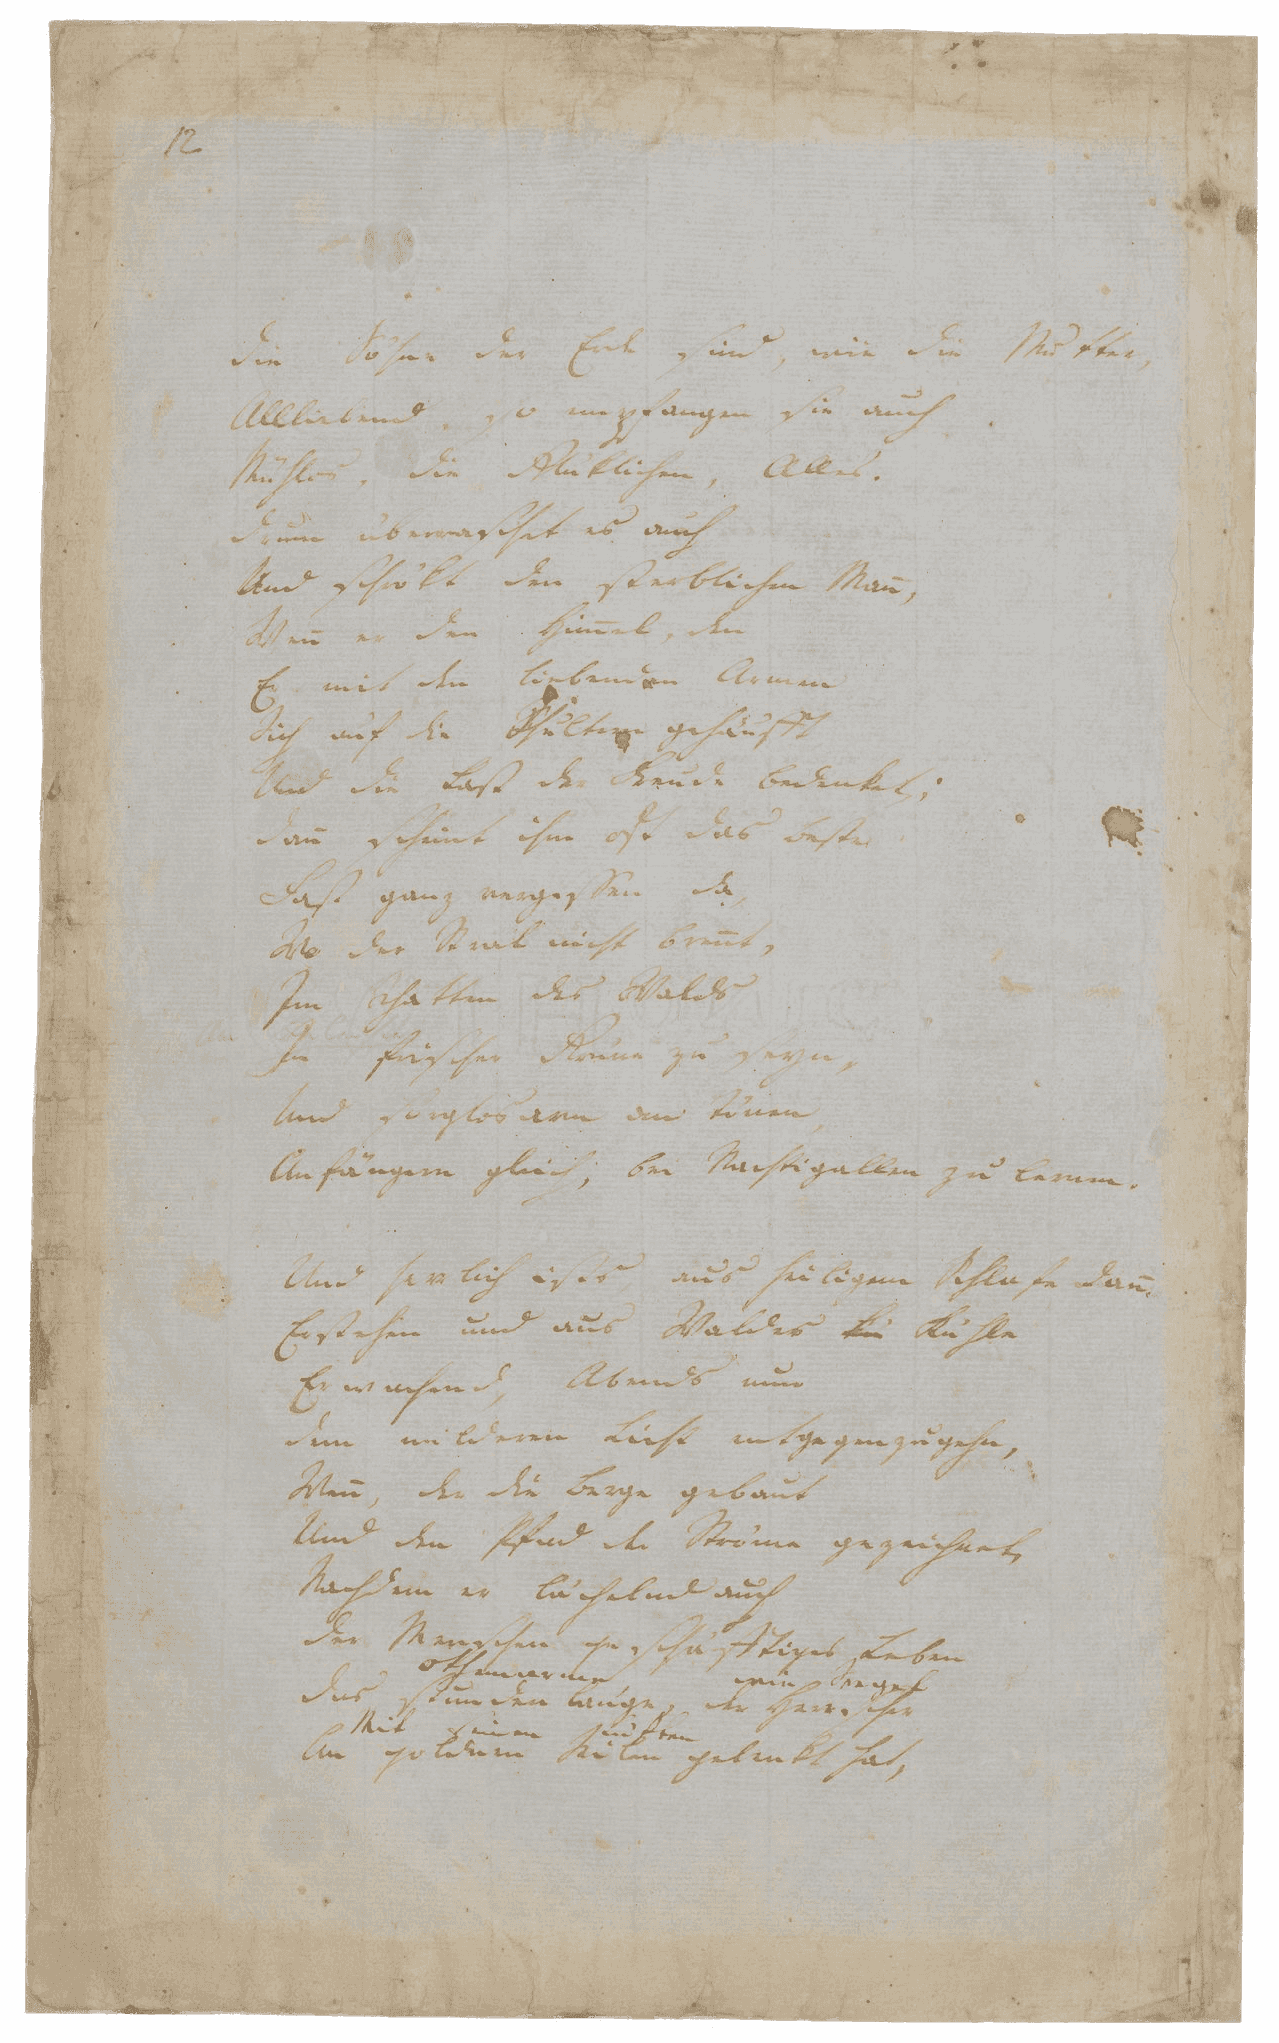 12
die Söhne der Erde sind, wie die Mutter,
Allliebend, so empfangen sie auch
Mühlos, die Glüklichen, Alles.
drum überraschet es auch
Und schrökt den sterblichen Mañ,
Weñ er den Him̄el, den
Er mit den liebenden Armen
Sich auf die Schultern gehäufft
Und die Last der Freude bedenket;
dañ scheint ihm oft das beste
Fast ganz vergessen da,
Wo der Stral nicht breñt,
Im Schatten des Walds
In frischer Grüne zu seyn,
Und sorglosarm an Tönen,
Anfängern gleich, bei Nachtigallen zu lernen.
Und herrlich ists aus heiligem Schlafe dañ.
Erstehen und aus Waldes Kühle
Erwachend, Abends nun
dem milderen Licht entgegenzugehn,
Weñ, der die Berge gebaut
Und den Pfad der Ströme gezeichnet,
Nachdem er lächelnd auch
der Menschen geschäfftiges Leben
othemarme wie Segel
das stundenlange, der Herrscher
Mit seinen Lüften
An goldnem Seilen gelenkt hat,